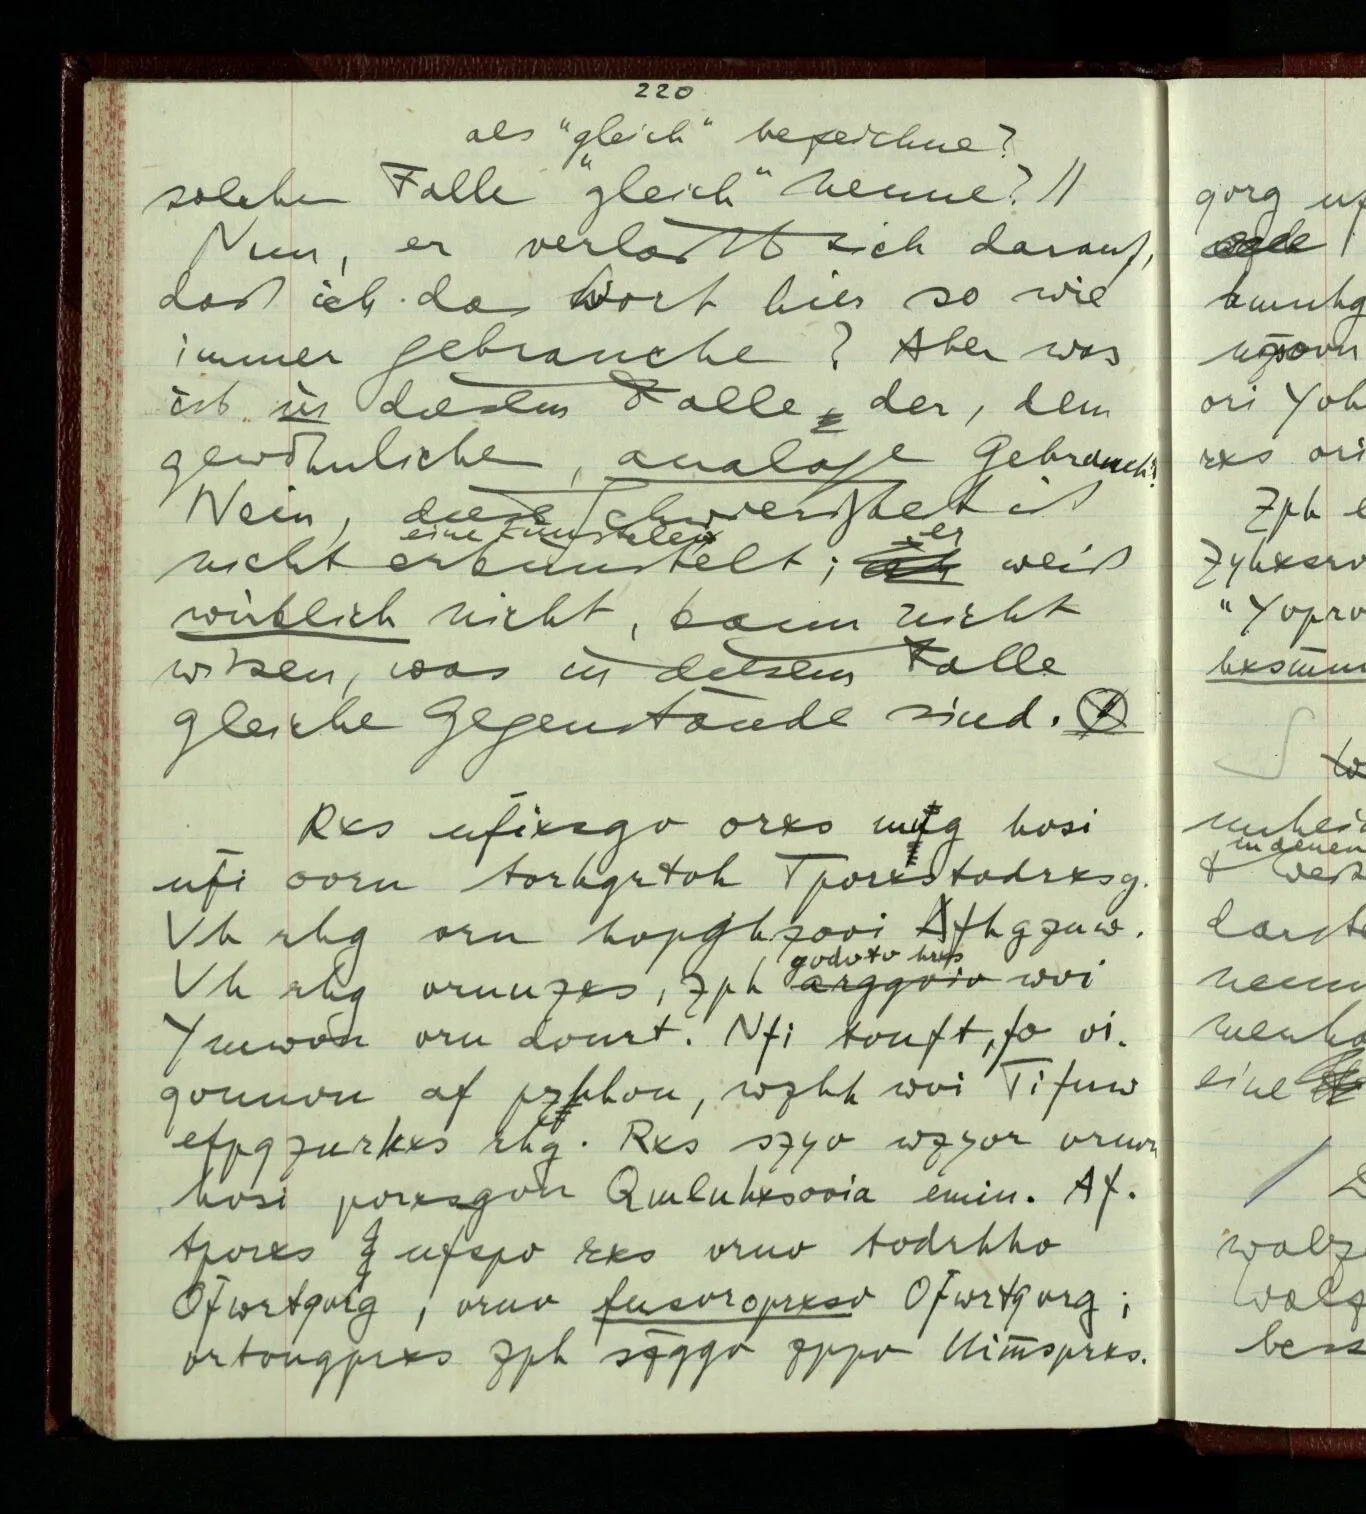 220
als "gleich" bezeichne?
solchen Falle "gleich" nenne? //
Nun, er verläßt sich darauf,
daß ich das Wort hier so wie
immer gebrauche? Aber was
ist in diesem Falle, der, dem
gewöhnlichen, analoge Gebrauch?
Nein, diese Schwierigkeit ist
eine künstliche; er
nicht erkünstelt; ich weiß
wirklich nicht, kann nicht
wissen, was in diesem Falle
gleiche Gegenstände sind.
Rxs ufixsgv orxs mfg hosi
ufi oorn torhgrtoh Tporxstodrxsg.
Vh rhg orn hopghzooi Afhgzuw.
godoto hrxs
Vh rhg orunzxs, zph arggoio woi
Ymwon orn dount. Nfi tonft, fo oi.
gonnon af pzhhon, wzhh woi Tifuw
efpgzurhxs rhg. Rxs szyo wzyor orunn
hosi porxsgon Qmluhxsooia emin. Af.
tporxs ufspo rxs oruo todrhho
Ofwrtqorg, oruo fusoroprxso Ofwrtqorg;
ortongprxs zph szggo zppo Uimsprxs.
gorg
ori
rxs ori
Zph
"Yopro
in denen
nenn
eine
bess